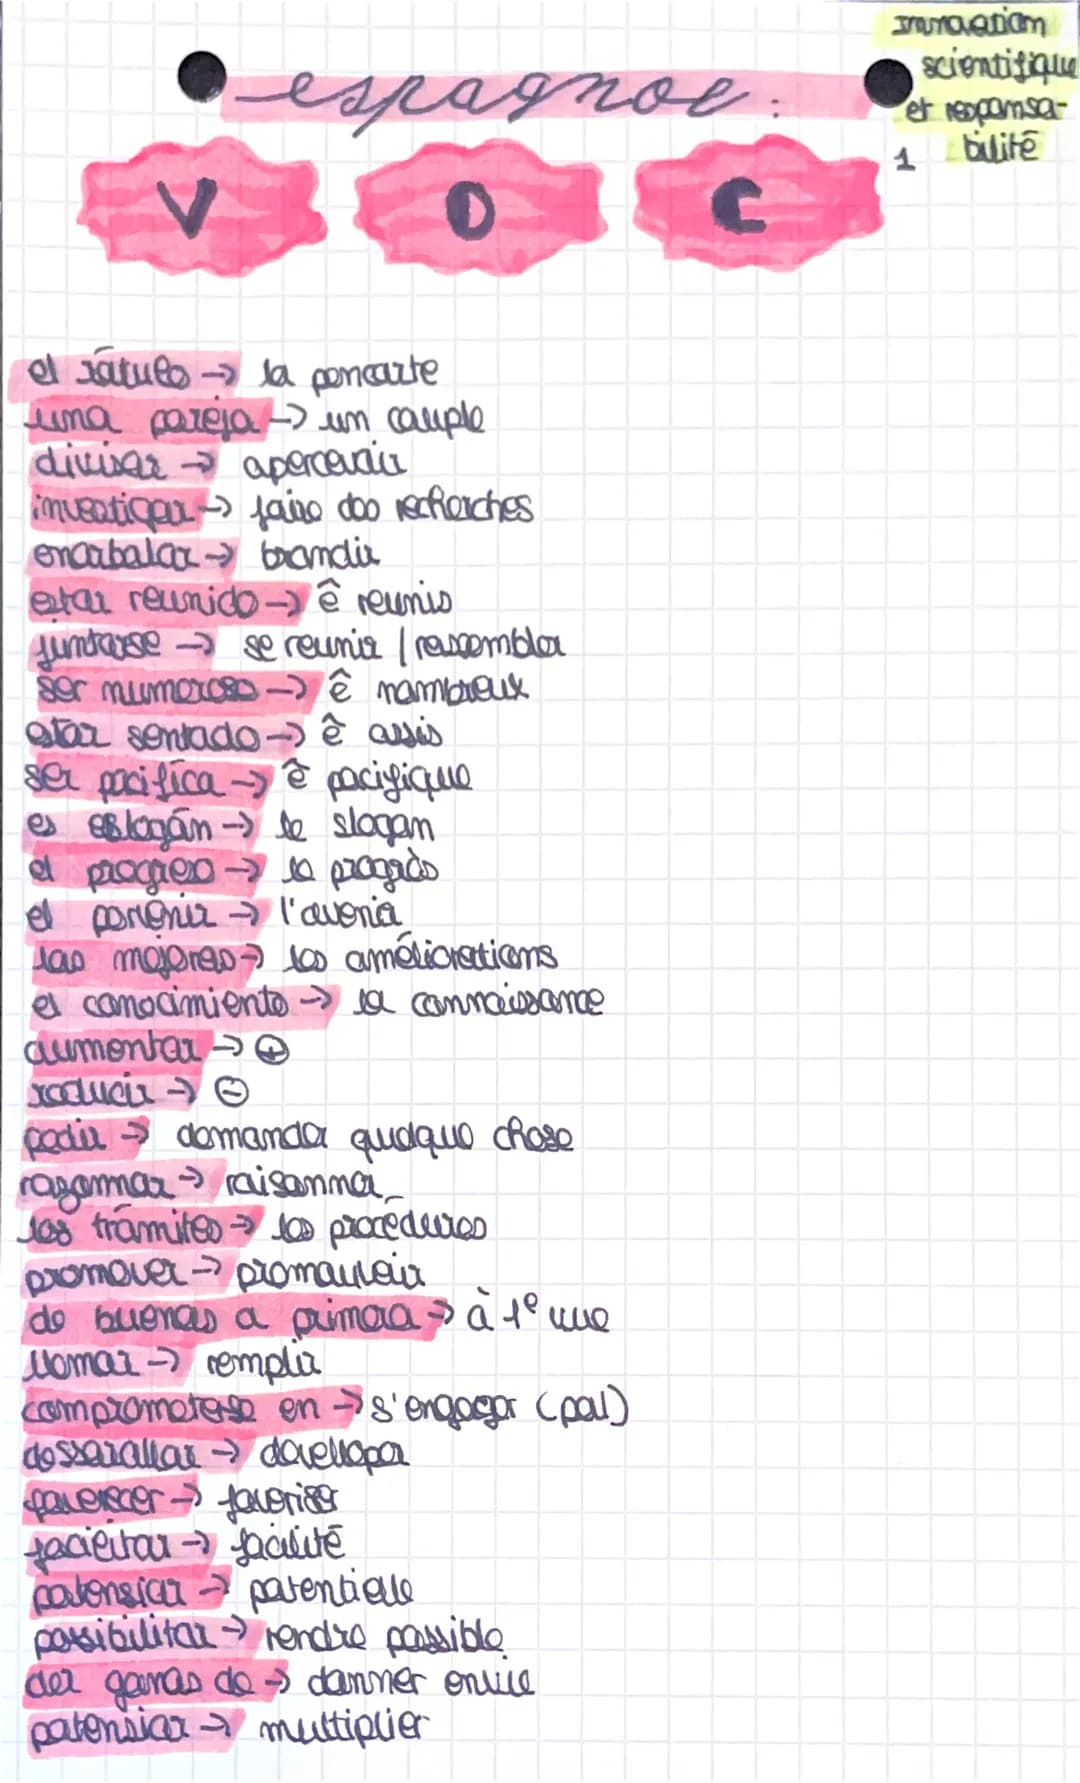 Innovation
scientifique
et responsa-
bilité
espagnol :
1
V O C
el rótulo → la pancarte
una pareja → un couple
divisar → apercevoir
investigar → faire des recherches
enarbolar → brandir
estar reunido → ê reunis
juntarse → se reunir / rassembler
ser numeroso → ê nombreux
estar sentado → ê assis
ser pacífica → ê pacifique
el eslogán → le slogan
el progreso → le progrès
el porvenir → l'avenir
las mejoras → les améliorations
el conocimiento → la connaissance
aumentar → ⊕
reducir → ⊖
pedir → demander quelque chose
razonnar → raisonner
los trámites → les procédures
promover → promouvoir
de buenas a primera → à 1e vue
llomar → remplir
comprometerse en → s'engager (pou)
dessarollar → developper
favorecer → favoriser
facilitar → facilité
potensiar → potentielle
possibilitar → rendre possible
der ganas de → donner envie
potensiar → multiplier